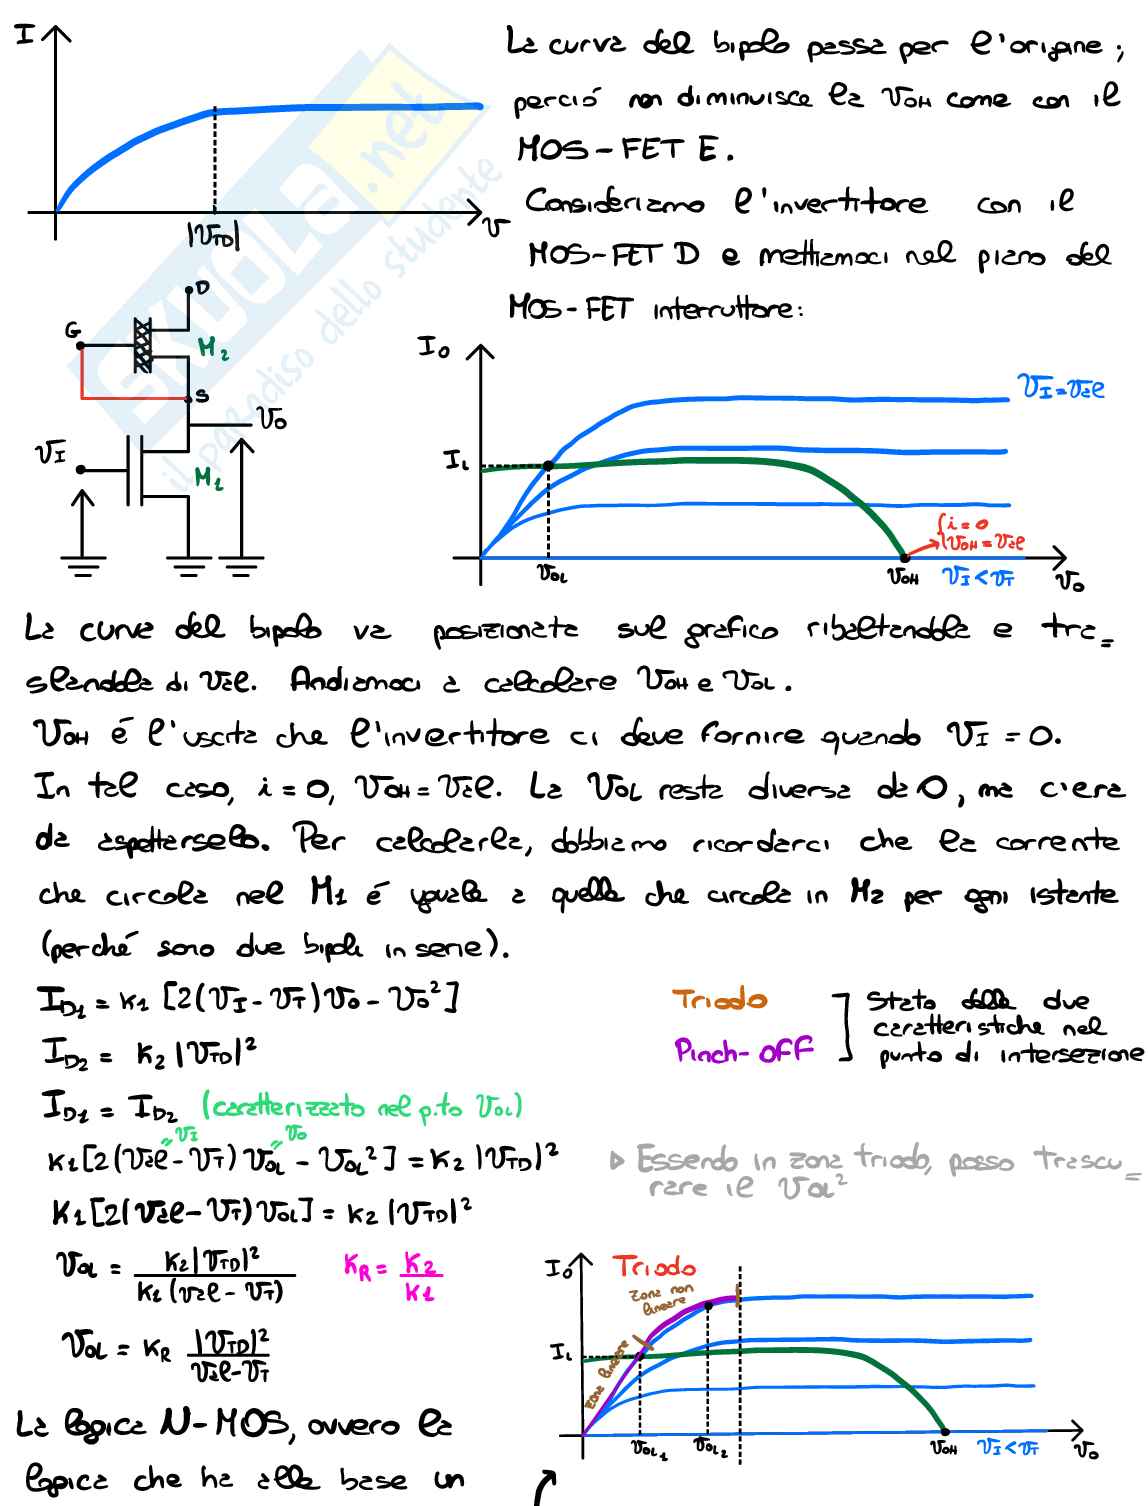 I
La curva del bipolo passa per l'origine;
perciò non diminuisce la VOH come con il
MOS-FET E.
Consideriamo l'invertitore con il
MOS-FET D e mettiamoci nel piano del
MOS-FET interruttore:
|VTD|
V
SKUOLA.net
il paradiso dello studente
D
G
M2
S
VO
VI
M1
IO
VI=Val
IL
{i=0
VOH=Val
VOL
VOH
VI<VT
VO
La curva del bipolo va posizionata sul grafico ribaltandola e tra=
slandola di Val. Andiamoci a calcolare VOH e VOL.
VOH é l'uscita che l'invertitore ci deve fornire quando VI=0.
In tal caso, i=0, VOH=Val. La VOL resta diversa da 0, ma c'era
da aspettarselo. Per calcolarla, dobbiamo ricordarci che la corrente
che circola nel M1 é uguale a quella che circola in M2 per ogni istante
(perché sono due bipoli in serie).
ID1 = K1 [2(VI-VT)VO-VO²]
Triodo
Pinch-off
Stato delle due
caratteristiche nel
punto di intersezione
ID2 = K2|VTD|²
ID1 = ID2 (caratterizzato nel p.to VOL)
=VI =VO
K1[2(Val-VT)VOL-VOL²]=K2|VTD|²
▷ Essendo in zona triodo, posso trascu=
rare il VOL²
K1[2(Val-VT)VOL]=K2|VTD|²
VOL = K2|VTD|² / K1(Val-VT)
KR = K2 / K1
VOL = KR |VTD|² / Val-VT
IO
Triodo
Zona non
lineare
zona lineare
IL
VOL1
VOL2
VOH
VI<VT
VO
La logica N-MOS, ovvero la
logica che ha alla base un